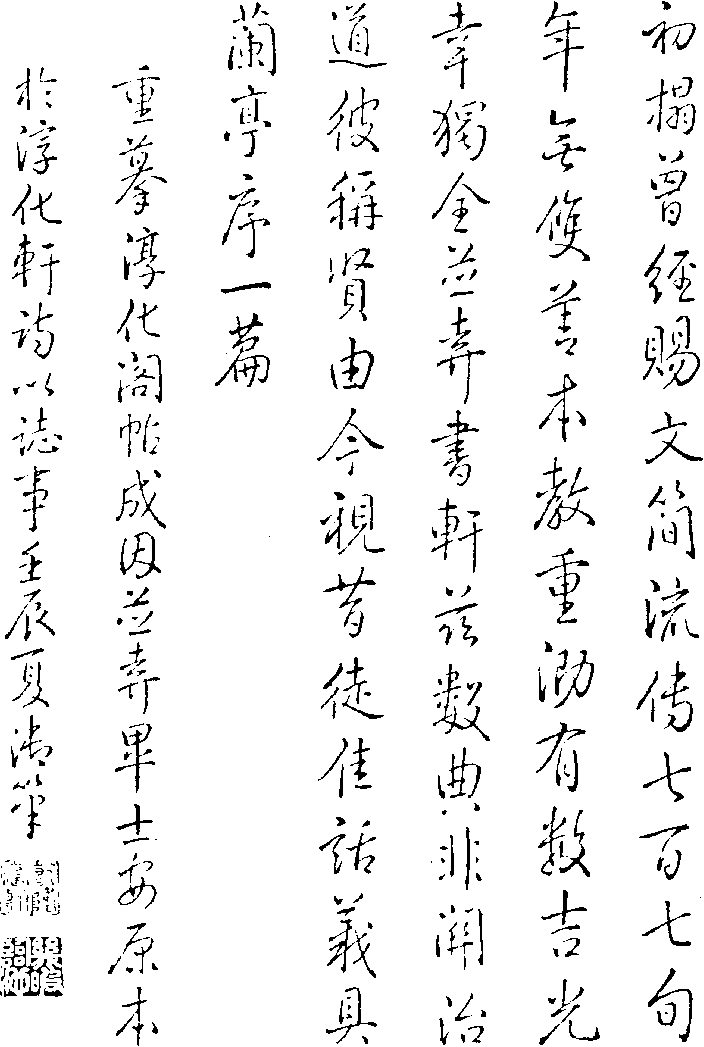 初榻曾經賜文簡流傳七百七旬
年無雙善本教重泐有數吉光
幸獨全並弆書軒茲數典非關治
道彼稱賢由今視昔徒佳話義具
蘭亭序一篇
重摹淳化閣帖成因並弆畢士安原本
於淳化軒詩以誌事壬辰夏御筆